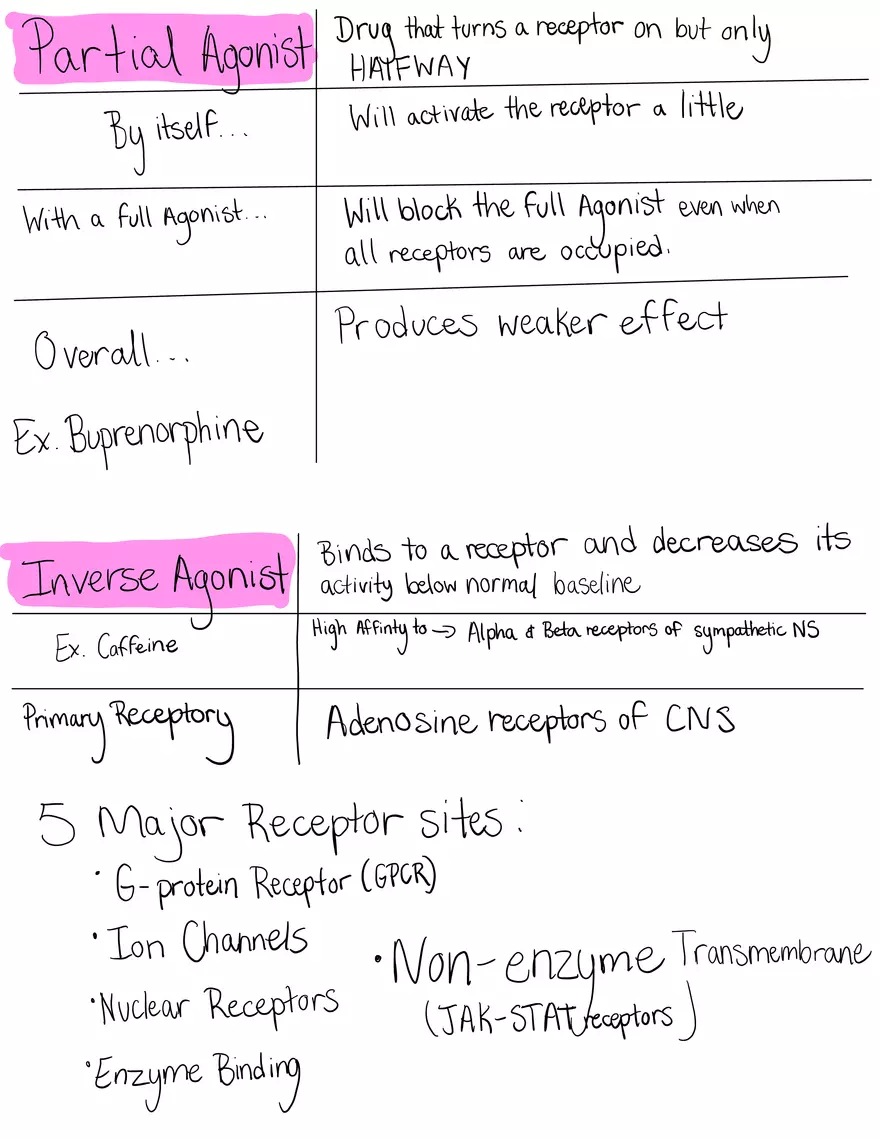 Partial Agonist
Drug that turns a receptor on but only
HALFWAY
By itself...
Will activate the receptor a little
With a full Agonist...
Will block the full Agonist even when
all receptors are occupied.
Overall...
Produces weaker effect
Ex. Buprenorphine
Inverse Agonist
Binds to a receptor and decreases its
activity below normal baseline
Ex. Caffeine
High Affinty to → Alpha & Beta receptors of sympathetic NS
Primary Receptory
Adenosine receptors of CNS
5 Major Receptor sites:
• G-protein Receptor (GPCR)
• Ion Channels
• Nuclear Receptors
• Enzyme Binding
• Non-enzyme Transmembrane
(JAK-STAT receptors)